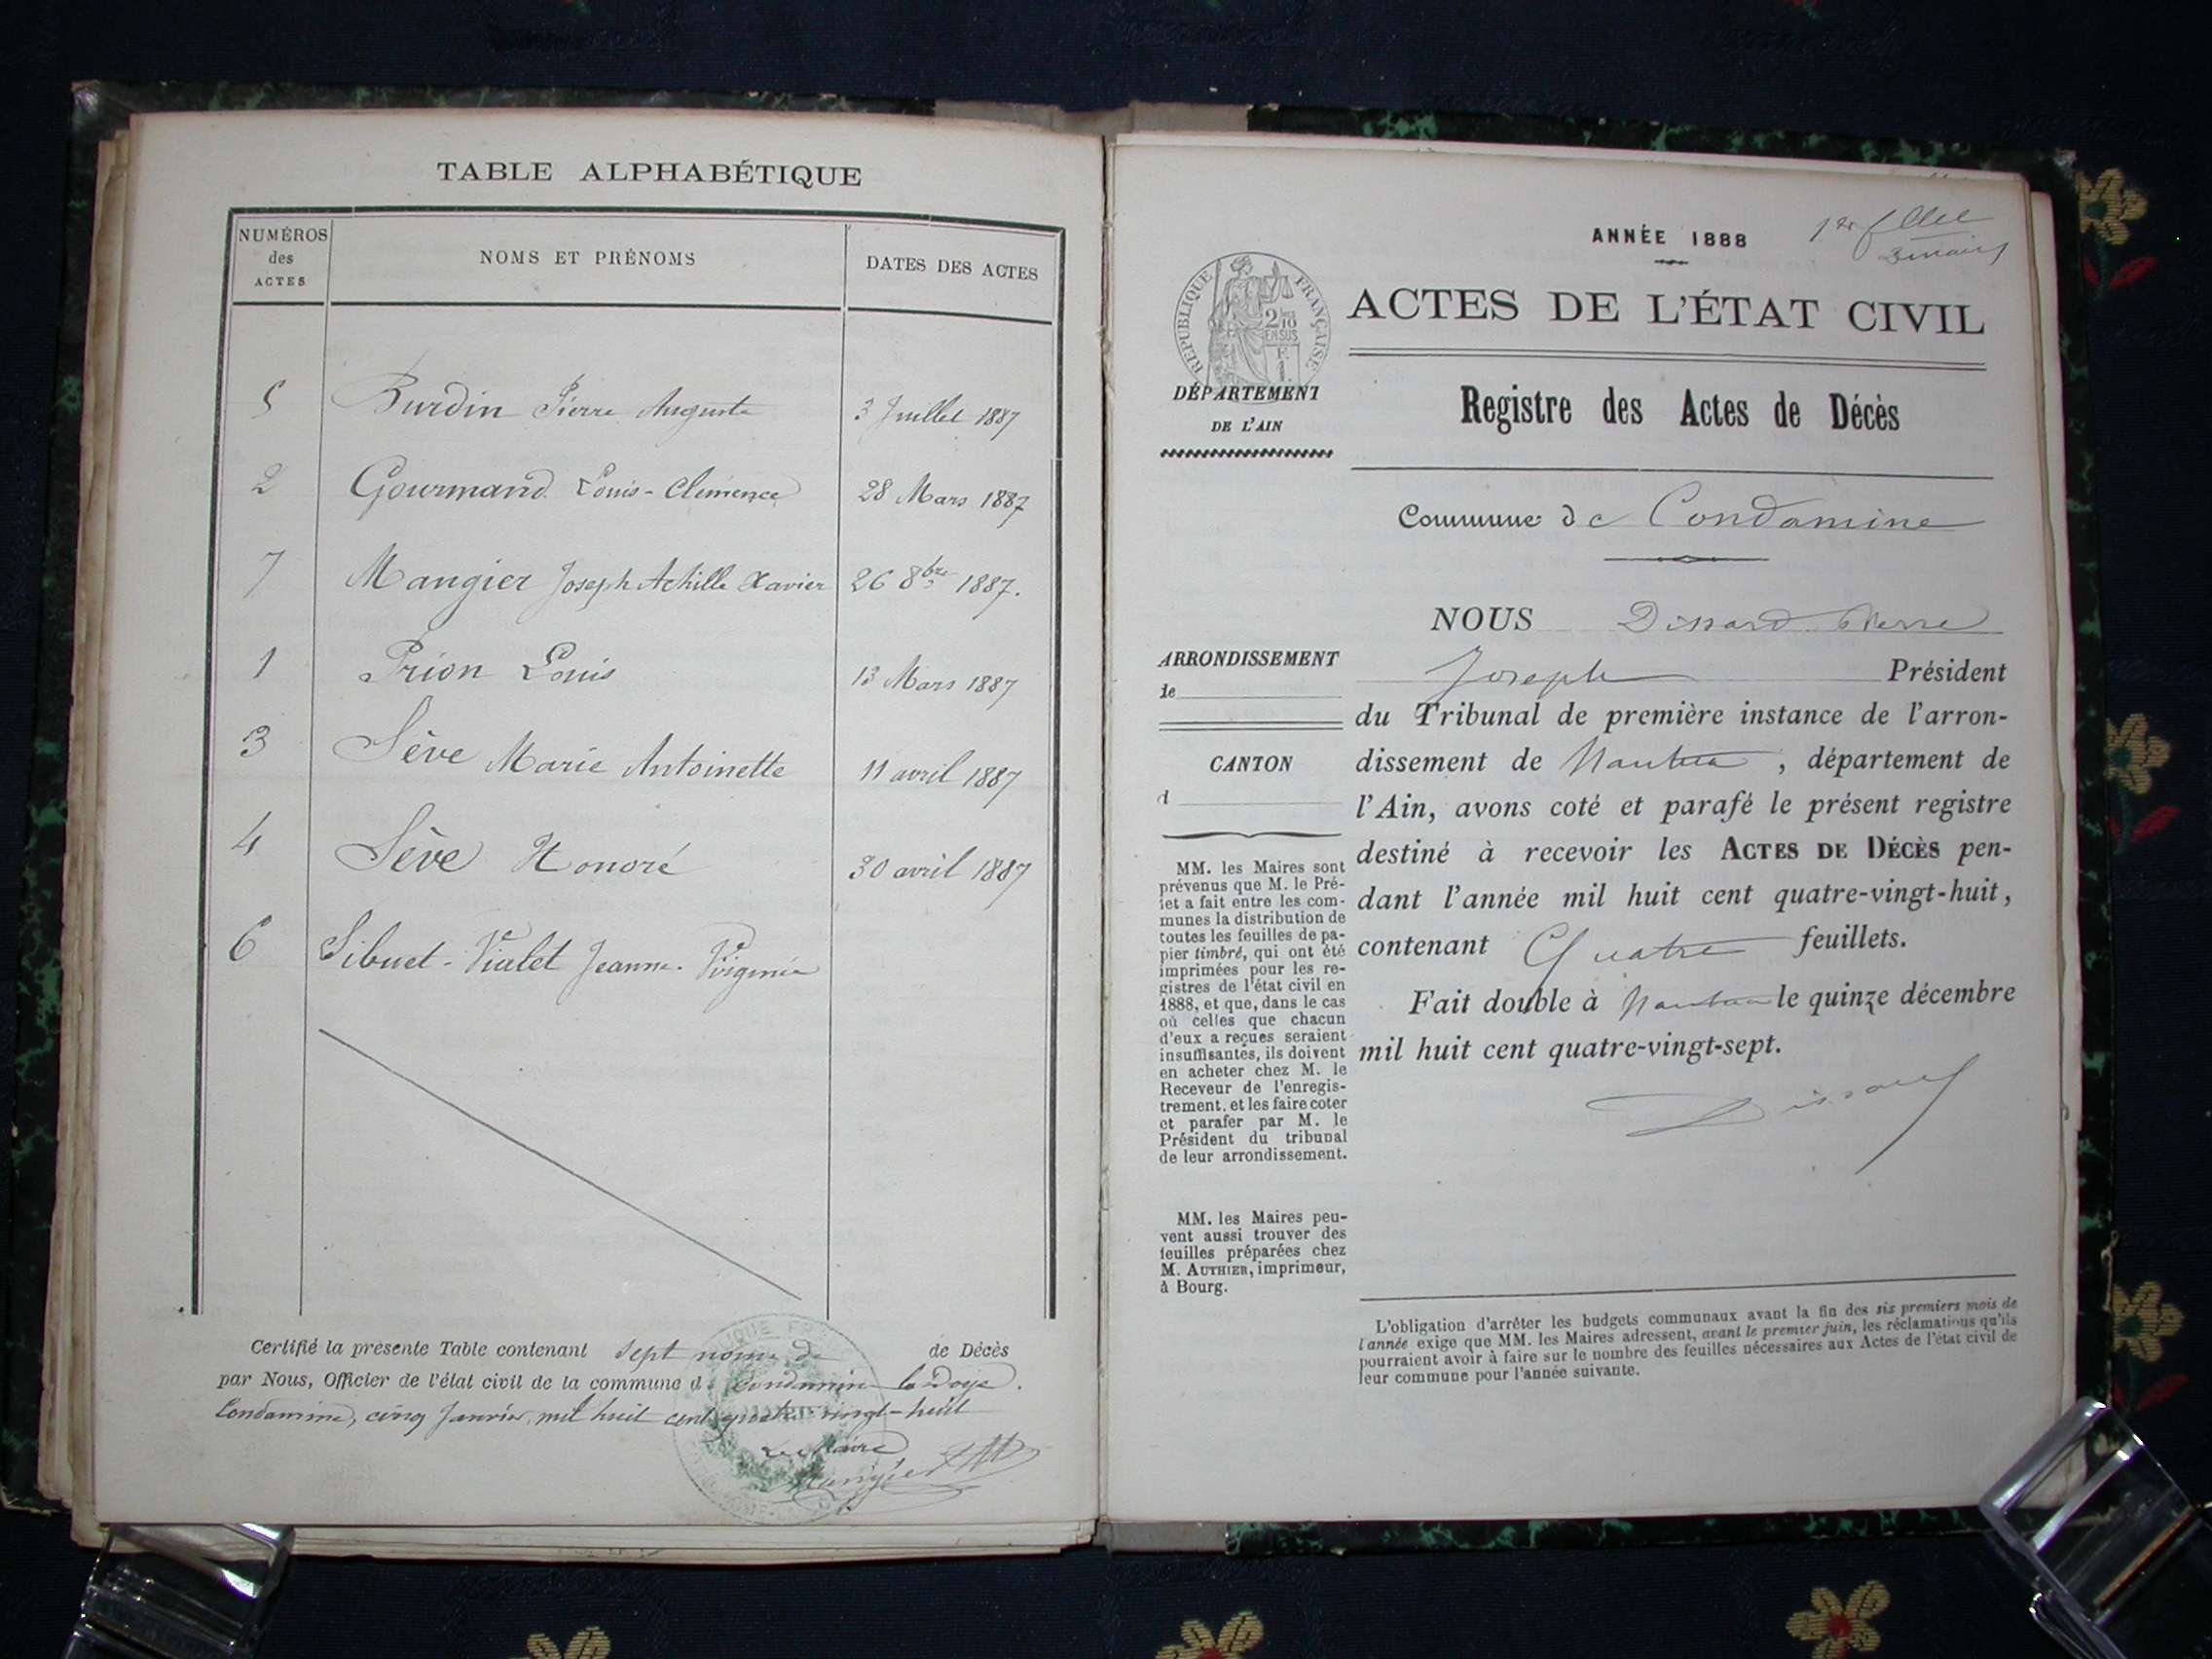 TABLE ALPHABÉTIQUE
NUMÉROS
des
ACTES
NOMS ET PRÉNOMS
DATES DES ACTES
5 Burdin Pierre Auguste 3 Juillet 1887
2 Gourmand Louis-Clémence 28 Mars 1887
7 Mangier Joseph Achille Xavier 26 8bre 1887.
1 Prion Louis 13 Mars 1887
3 Sève Marie Antoinette 11 avril 1887
4 Sève Honoré 30 avril 1887
6 Sibuet-Vialet Jeanne-Virginie
Certifié la présente Table contenant sept noms de de Décès
par Nous, Officier de l'état civil de la commune d Condamine la Doye.
Condamine, cinq Janvier mil huit cent quatre-vingt-huit
Le Maire
Mangier
ANNÉE 1888
1er
RÉPUBLIQUE FRANÇAISE
2/10
EN SUS
F.
1.
ACTES DE L'ÉTAT CIVIL
DÉPARTEMENT
DE L'AIN
Registre des Actes de Décès
Commune de Condamine
NOUS Dissard Pierre
Joseph Président
du Tribunal de première instance de l'arron-
dissement de Nantua, département de
l'Ain, avons coté et parafé le présent registre
destiné à recevoir les ACTES DE DÉCÈS pen-
dant l'année mil huit cent quatre-vingt-huit,
contenant Quatre feuillets.
Fait double à Nantua le quinze décembre
mil huit cent quatre-vingt-sept.
Dissard
ARRONDISSEMENT
de
CANTON
d
MM. les Maires sont
prévenus que M. le Pré-
fet a fait entre les com-
munes la distribution de
toutes les feuilles de pa-
pier timbré, qui ont été
imprimées pour les re-
gistres de l'état civil en
1888, et que, dans le cas
où celles que chacun
d'eux a reçues seraient
insuffisantes, ils doivent
en acheter chez M. le
Receveur de l'enregis-
trement, et les faire coter
et parafer par M. le
Président du tribunal
de leur arrondissement.
MM. les Maires peu-
vent aussi trouver des
feuilles préparées chez
M. AUTHIER, imprimeur,
à Bourg.
L'obligation d'arrêter les budgets communaux avant la fin des six premiers mois de
l'année exige que MM. les Maires adressent, avant le premier juin, les réclamations qu'ils
pourraient avoir à faire sur le nombre des feuilles nécessaires aux Actes de l'état civil de
leur commune pour l'année suivante.